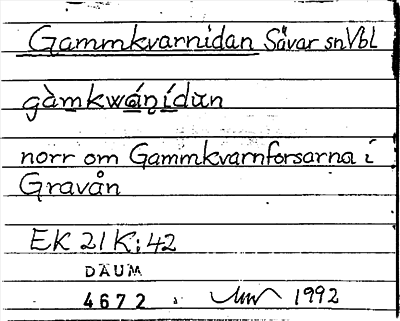 Gammkvarnidan Sävar sn Vbl
gàmkwánídn
norr om Gammkvarnforsarna i
Gravån
EK 21 K:42
DAUM
4672. 1992